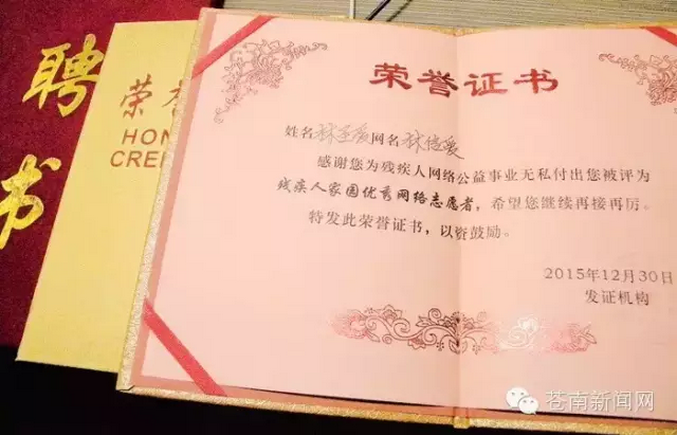 聘
书
荣誉
HON
CREE
荣誉证书
姓名林至爱网名林信爱
感谢您为残疾人网络公益事业无私付出您被评为
残疾人家园优秀网络志愿者，希望您继续再接再厉。
特发此荣誉证书，以资鼓励。
2015年12月30日
发证机构
苍南新闻网